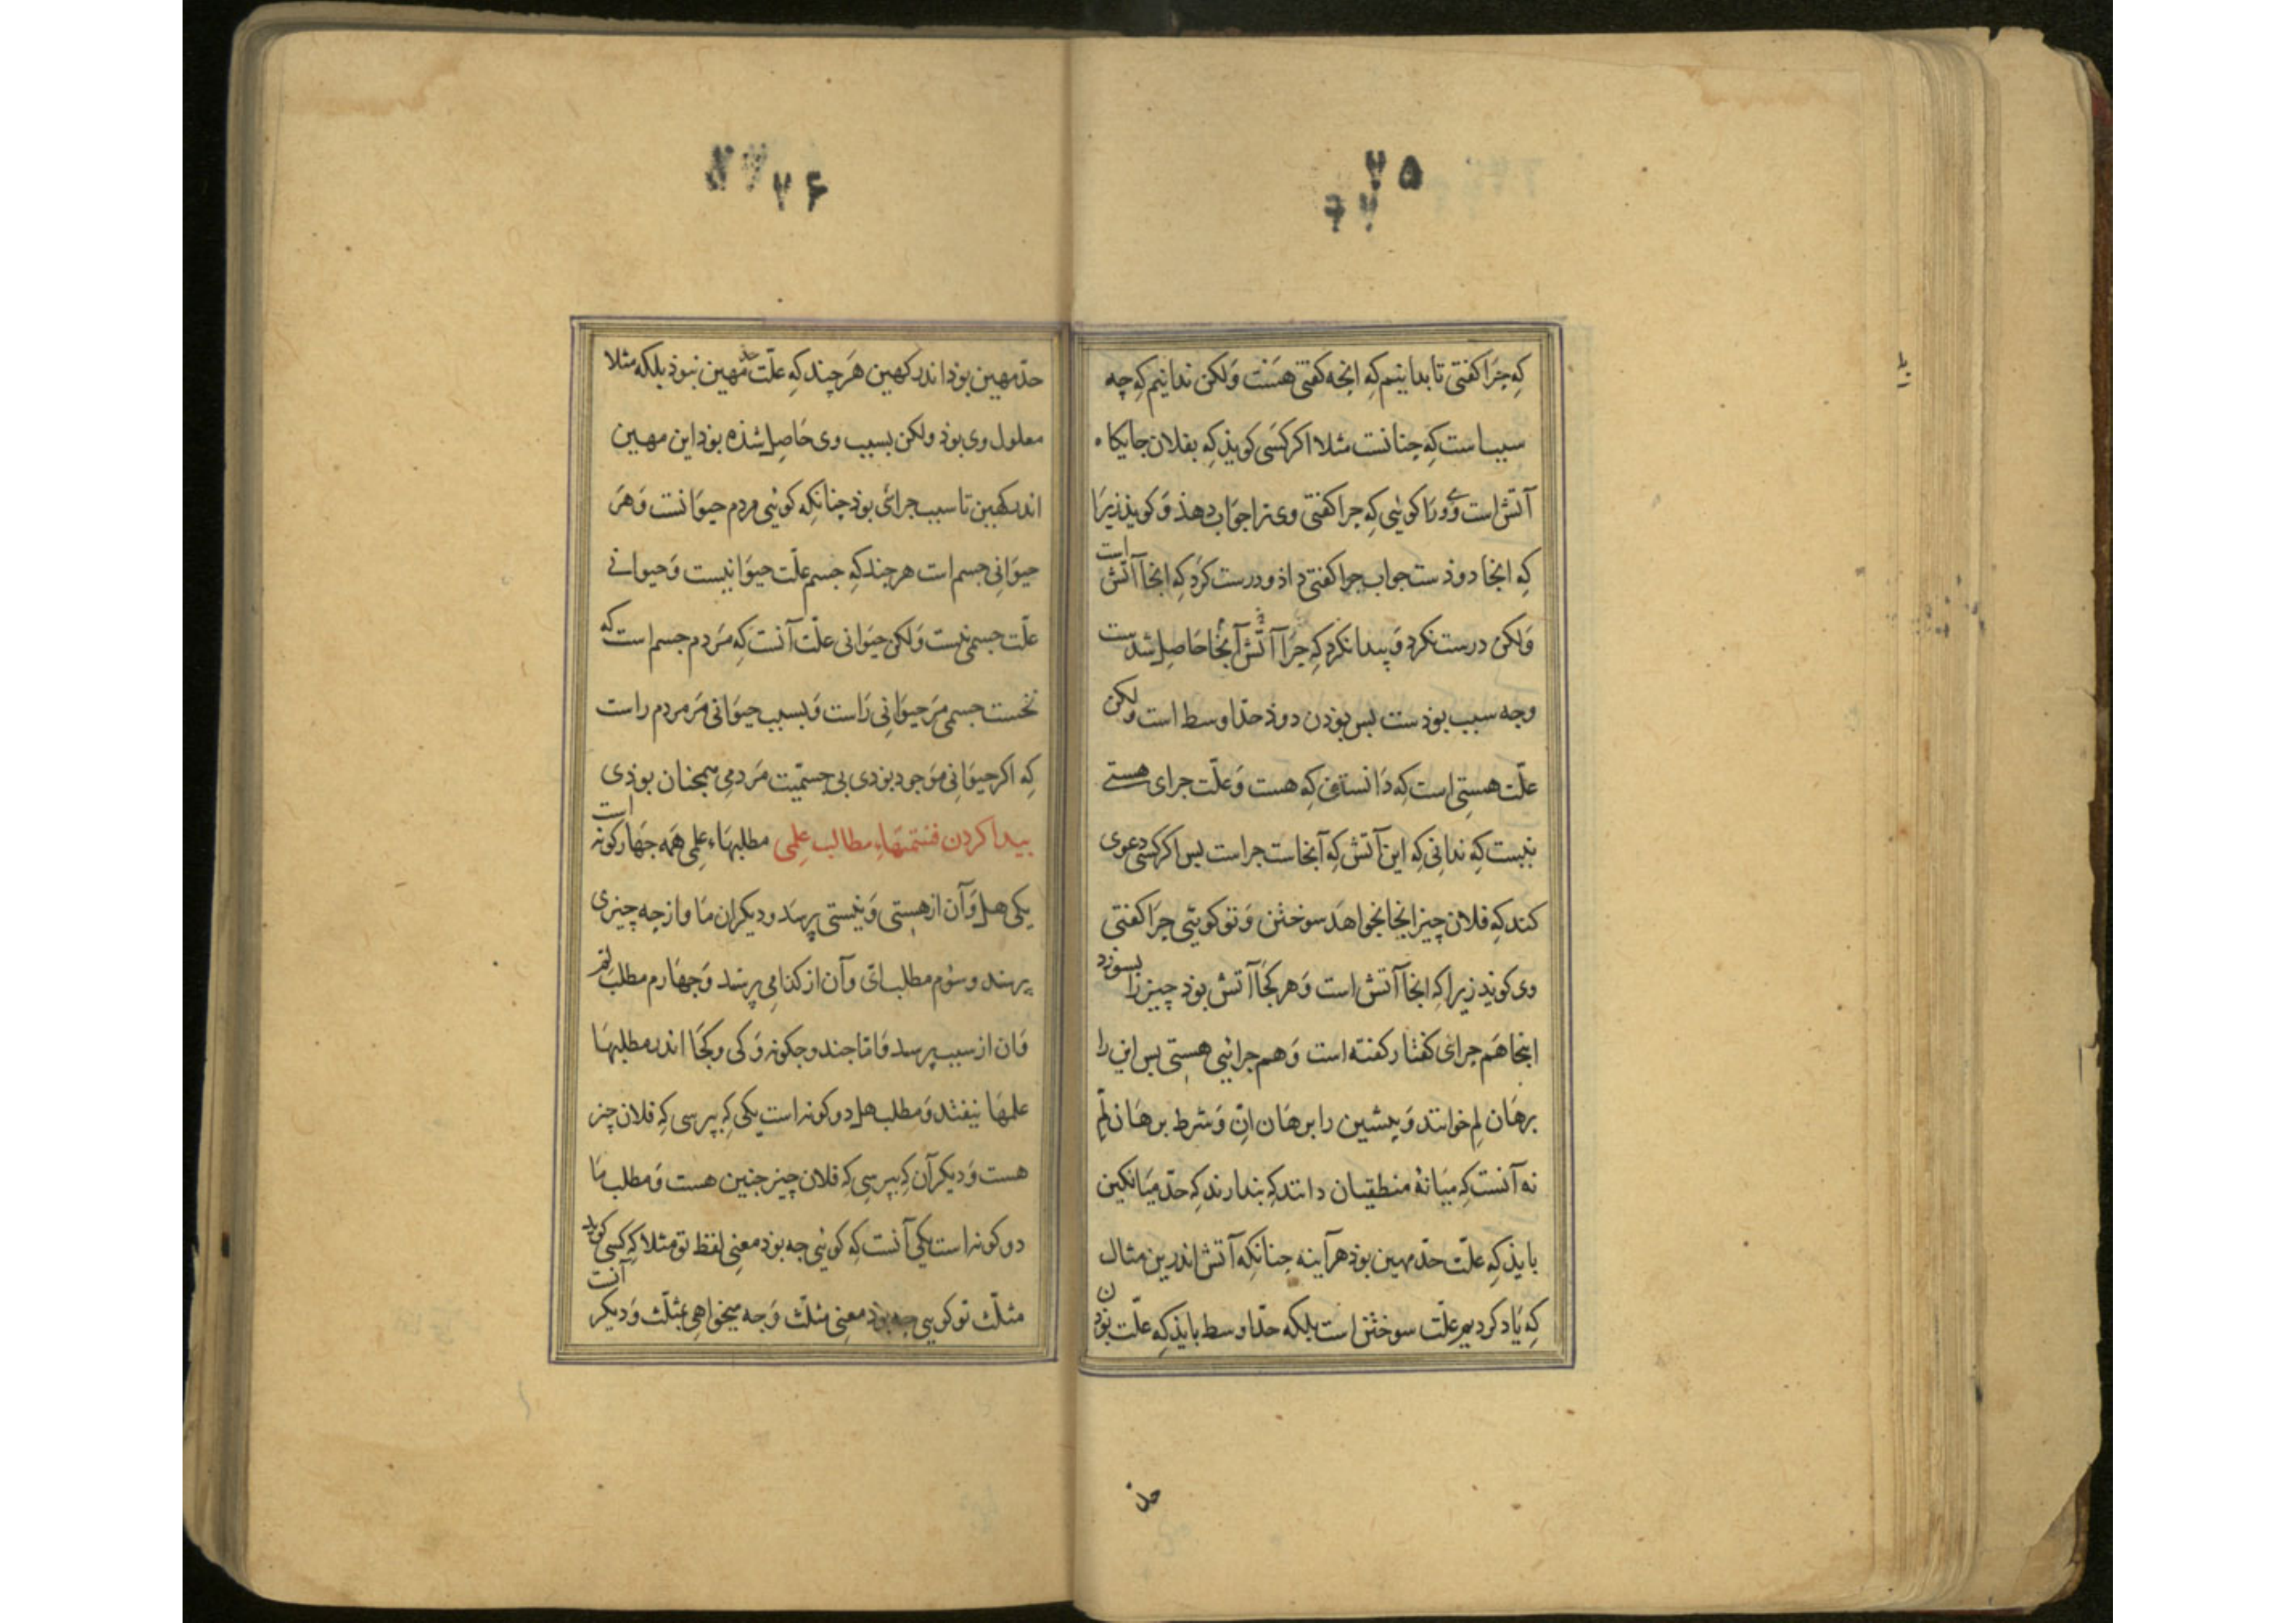 ۲۵
۲۶
که چرا کفتی تا بدانیم که انجه کفتی هست وَلکن ندانیم که چه
سبب است که چنانست مثلا اکر کسی کویذ که بفلان جایکاه
آتش است وَوی را کوئی که چرا کفتی وی ترا جوَاب دهذ وَکویذ زیرَا
که انجا دوذ است جواب چرا کفتی داذ و درست کرد که انجا آتش است
وَلکن درست نکرد وَپیدا نکرد که چرَا آتش آنجا حَاصل شدست
وچه سبب بوذست بس بوذن دوذ حدّ اوسط است ولکن
علّت هستی است که دَانستن که هست وَعلّت جرای هستی
نیست که ندانی که این آتش که آنجاست جراست بس اکر کسی دعوی
کند که فلان چیز انجا بخواهَد سوختن وَتو کویئی چرَا کفتی
وی کویذ زیرا که انجا آتش است وَهر کجَا آتش بوذ چیز را بسوزد
اینجا هَم جرای کفتار کفته است وَهم جرائیی هستی بس این را
برهَان لِم خوانند وَپیشین را برهَان اِنّ وَشرط برهَان لِم
نه آنست که میَانهٔ منطقیان دانند که بندارند که حدّ میَانکین
بایذ که علّت حدّ مهین بوذ هرآینه چنانکه آتش اندرین مثال
که یَاد کردیم علّت سوختن است بلکه حدّ اوسط بایذ که علّت بوذن
حد
حدّ مهین بوذ اندر کهین هَر چند که علّت حد مهین نبوذ بلکه مثلا
معلول وی بوذ ولکن بسبب وی حَاصل شذه بوذ این مهین
اندر کهین تا سبب جرائی بوذ چنانکه کوئی مردم حیوَانست وَهر
حیوَانی جسم است هر چند که جسم علّت حیوَانیست وَحیوانی
علّت جسمی نیست وَلکن حیوَانی علّت آنست که مَردم جسم است که
نخست جسمی مَر حیوَانی رَاست وَبسبب حیوَانی مَر مردم راست
که اکر حیوَانی موَجود بوذی بی جسمّیت مَردمی همچنان بوذی
بیدا کردن قسمتهَاء مطالب علمی مطلبهَاء علمی همَه جهَارکونه است
یکی هل وَآن از هستی وَنیستی پرسَد و دیکر ان مَا و از چه چیزی
پرسند و سوم مطلب ایّ وآن از کدامی پرسَد وَجهَارم مطلب لِم
وَان از سبب پرسد وَامّا جند و جکونه وَکی و کجَا اندر مطلبهَا
علمهَا نیفتد وَمطلب هل دو کونه است یکی که بپرسی که فلان چیز
هست وَدیکر آن که بپرسی که فلان چیز جنین هست وَمطلب مَا
دو کونه است یکی آنست که کوئی جه بوذ معنی لفظ تو مثلا که کسی کوید
مثلّث تو کویی جه بوذ معنی مثلّث وَجه میخواهی بمثلّث وَدیکر آنست